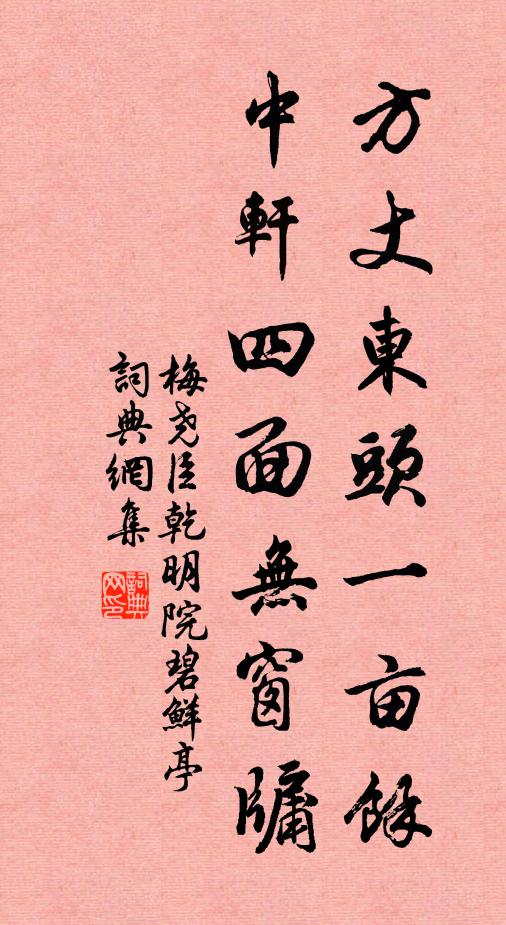 方丈東頭一亩餘
中軒四面無窗牖
梅尧臣乾明院碧鮮亭
詞典網集
詞典网印